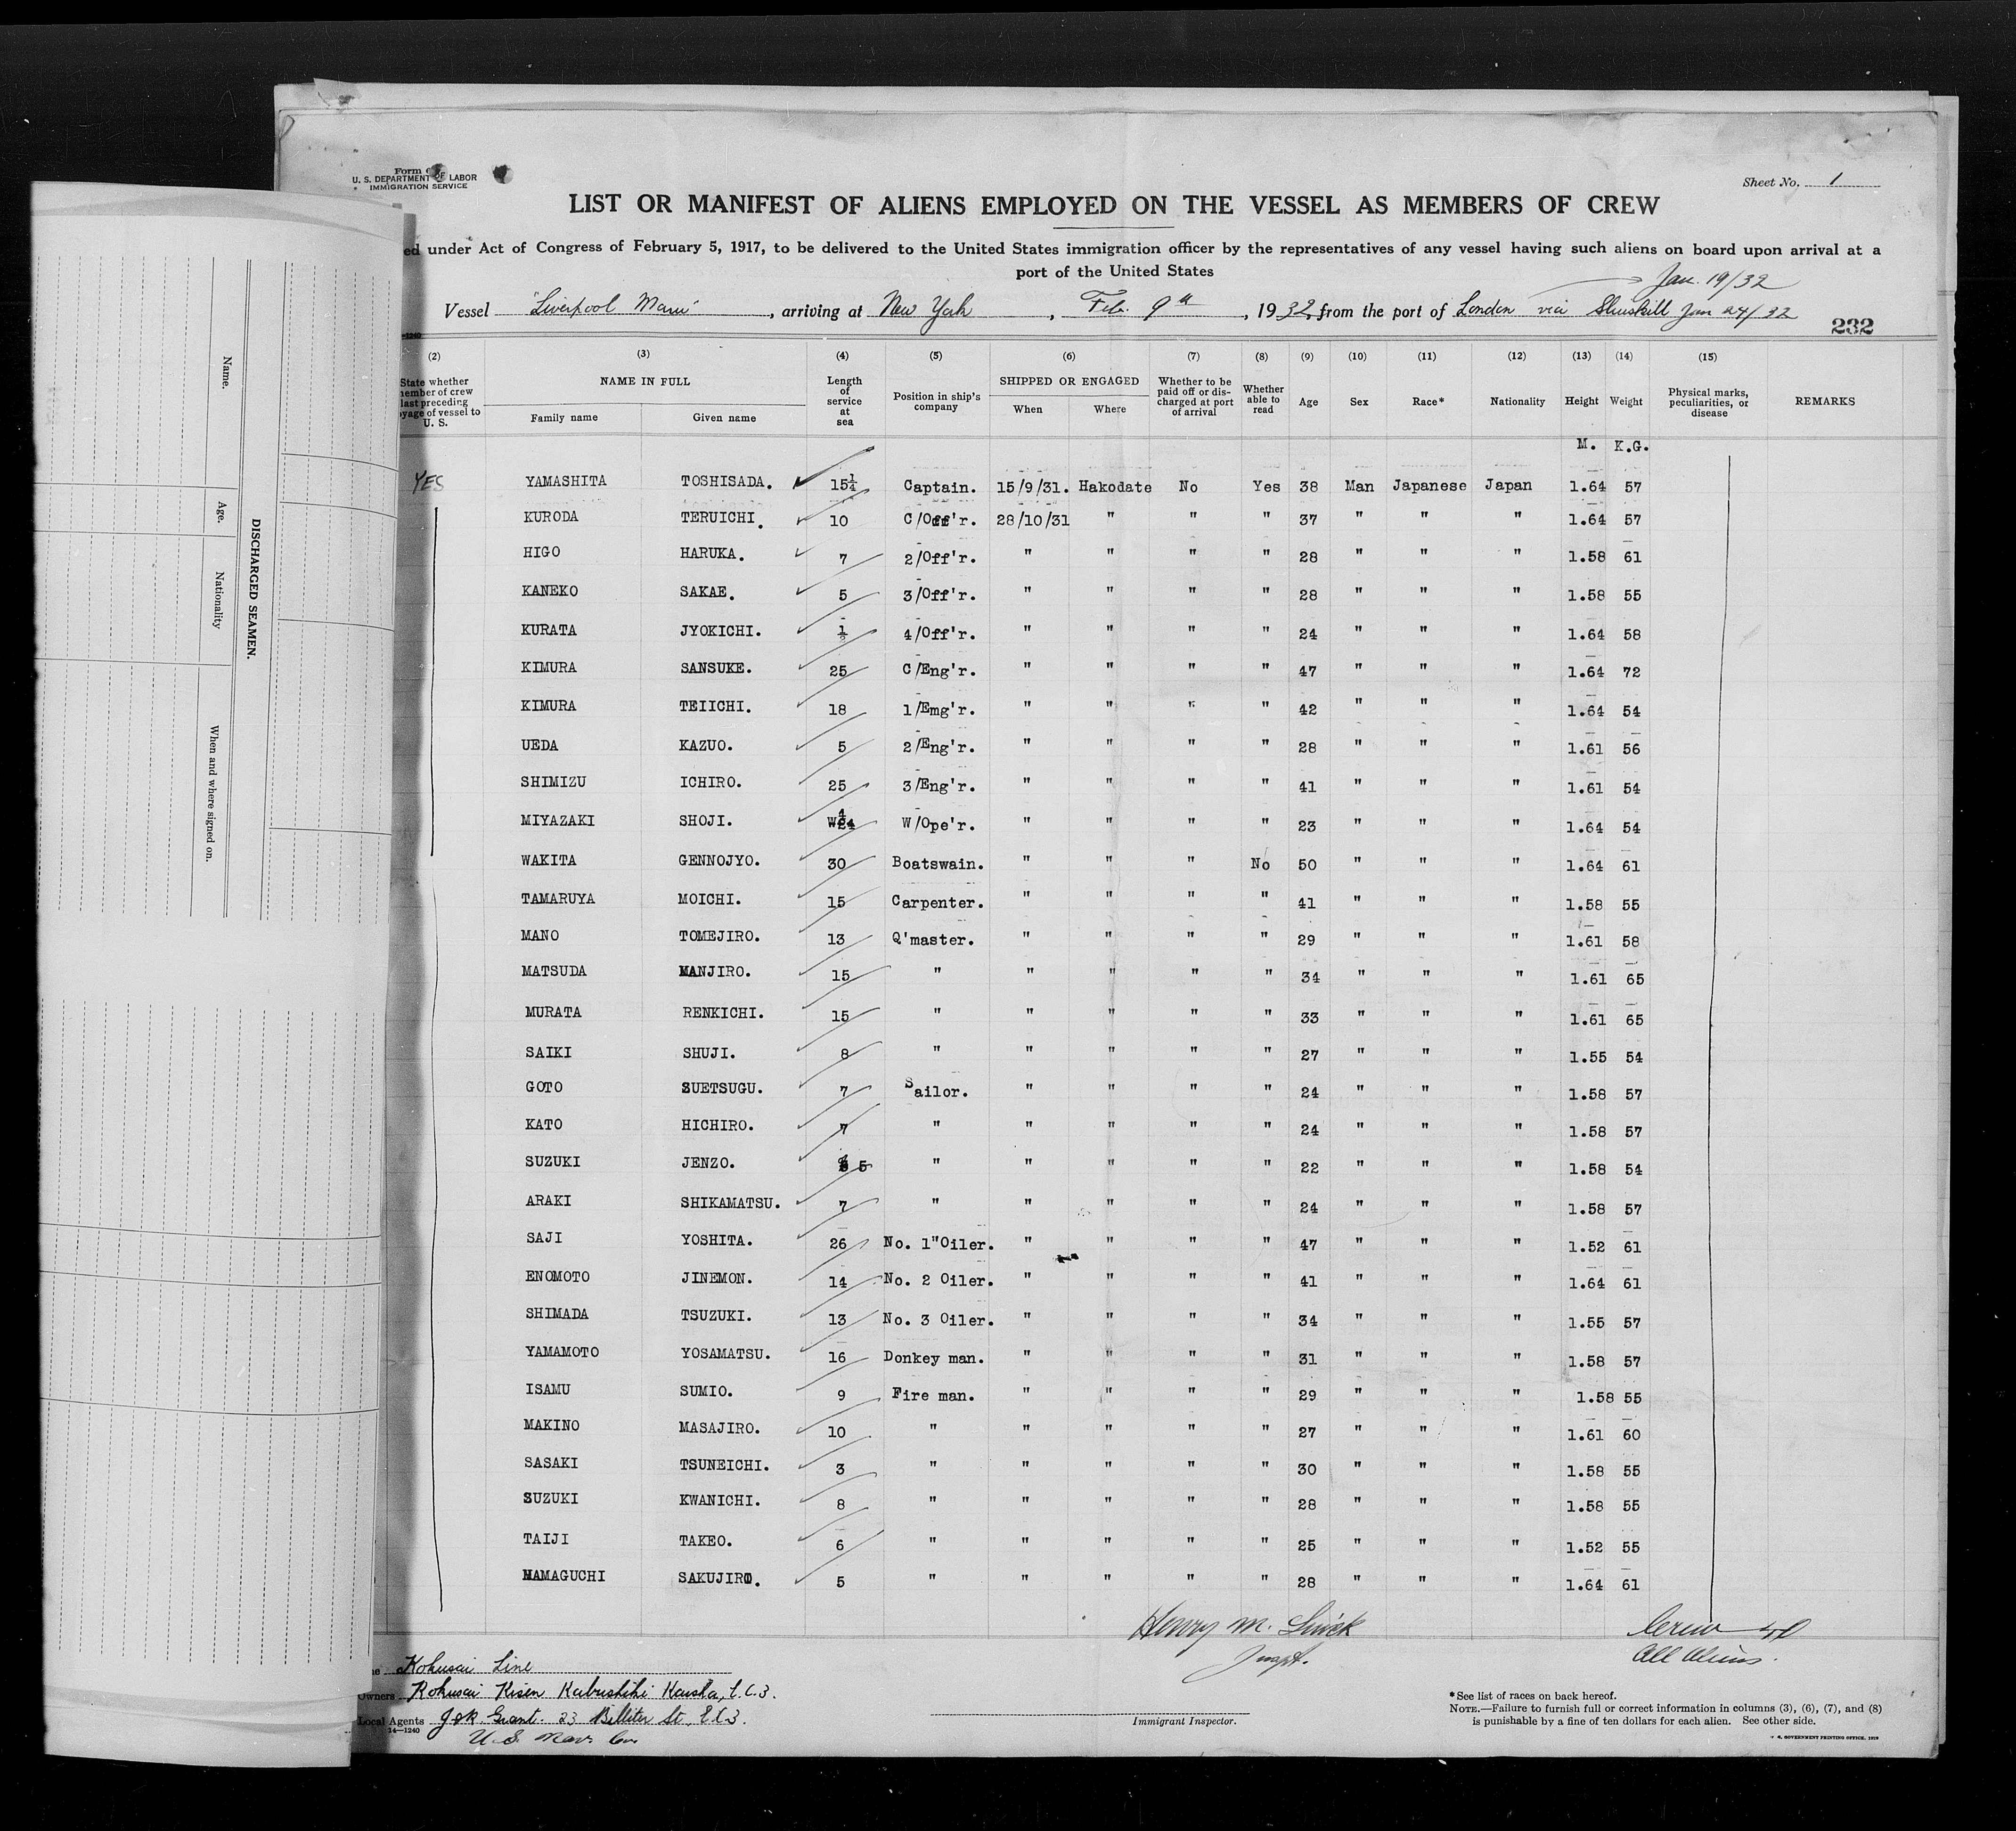 Form
U. S. DEPARTMENT OF LABOR
IMMIGRATION SERVICE
Sheet No. 1
LIST OR MANIFEST OF ALIENS EMPLOYED ON THE VESSEL AS MEMBERS OF CREW
ed under Act of Congress of February 5, 1917, to be delivered to the United States immigration officer by the representatives of any vessel having such aliens on board upon arrival at a
port of the United States
Jan. 19/32
Vessel "Liverpool Maru", arriving at New York, Feb. 9th, 1932, from the port of London via Jan 24/32
232
(2) (3) (4) (5) (6) (7) (8) (9) (10) (11) (12) (13) (14) (15)
State whether member of crew last preceding voyage of vessel to U. S.
NAME IN FULL
Family name Given name
Length of service at sea
Position in ship's company
SHIPPED OR ENGAGED
When Where
Whether to be paid off or discharged at port of arrival
Whether able to read
Age Sex Race* Nationality Height Weight
Physical marks, peculiarities, or disease
REMARKS
M. K.G.
YES YAMASHITA TOSHISADA. 15¼ Captain. 15/9/31. Hakodate No Yes 38 Man Japanese Japan 1.64 57
KURODA TERUICHI. 10 C/Off'r. 28/10/31 " " " 37 " " " 1.64 57
HIGO HARUKA. 7 2/Off'r. " " " " 28 " " " 1.58 61
KANEKO SAKAE. 5 3/Off'r. " " " " 28 " " " 1.58 55
KURATA JYOKICHI. ½ 4/Off'r. " " " " 24 " " " 1.64 58
KIMURA SANSUKE. 25 C/Eng'r. " " " " 47 " " " 1.64 72
KIMURA TEIICHI. 18 1/Emg'r. " " " " 42 " " " 1.64 54
UEDA KAZUO. 5 2/Eng'r. " " " " 28 " " " 1.61 56
SHIMIZU ICHIRO. 25 3/Eng'r. " " " " 41 " " " 1.61 54
MIYAZAKI SHOJI. W/Ope'r. " " " " 23 " " " 1.64 54
WAKITA GENNOJYO. 30 Boatswain. " " " No 50 " " " 1.64 61
TAMARUYA MOICHI. 15 Carpenter. " " " " 41 " " " 1.58 55
MANO TOMEJIRO. 13 Q'master. " " " " 29 " " " 1.61 58
MATSUDA MANJIRO. 15 " " " " " 34 " " " 1.61 65
MURATA RENKICHI. 15 " " " " " 33 " " " 1.61 65
SAIKI SHUJI. 8 " " " " " 27 " " " 1.55 54
GOTO SUETSUGU. 7 Sailor. " " " " 24 " " " 1.58 57
KATO HICHIRO. 7 " " " " " 24 " " " 1.58 57
SUZUKI JENZO. 5 " " " " " 22 " " " 1.58 54
ARAKI SHIKAMATSU. 7 " " " " " 24 " " " 1.58 57
SAJI YOSHITA. 26 No. 1"Oiler. " " " " 47 " " " 1.52 61
ENOMOTO JINEMON. 14 No. 2 Oiler. " " " " 41 " " " 1.64 61
SHIMADA TSUZUKI. 13 No. 3 Oiler. " " " " 34 " " " 1.55 57
YAMAMOTO YOSAMATSU. 16 Donkey man. " " " " 31 " " " 1.58 57
ISAMU SUMIO. 9 Fire man. " " " " 29 " " " 1.58 55
MAKINO MASAJIRO. 10 " " " " " 27 " " " 1.61 60
SASAKI TSUNEICHI. 3 " " " " " 30 " " " 1.58 55
SUZUKI KWANICHI. 8 " " " " " 28 " " " 1.58 55
TAIJI TAKEO. 6 " " " " " 25 " " " 1.52 55
HAMAGUCHI SAKUJIRO. 5 " " " " " 28 " " " 1.64 61
Henry M.
Inspt.
Crew
All Aliens.
Kokusai Line
Owners Kokusai Kisen Kabushiki Kaisha, E.C.3.
Local Agents J & K Grant. 23 Billiter St. E.C.3.
14—1240
U.S. Nav. Co.
Immigrant Inspector.
*See list of races on back hereof.
NOTE.—Failure to furnish full or correct information in columns (3), (6), (7), and (8)
is punishable by a fine of ten dollars for each alien. See other side.
GOVERNMENT PRINTING OFFICE
DISCHARGED SEAMEN.
Name.
Age.
Nationality
When and where signed on.